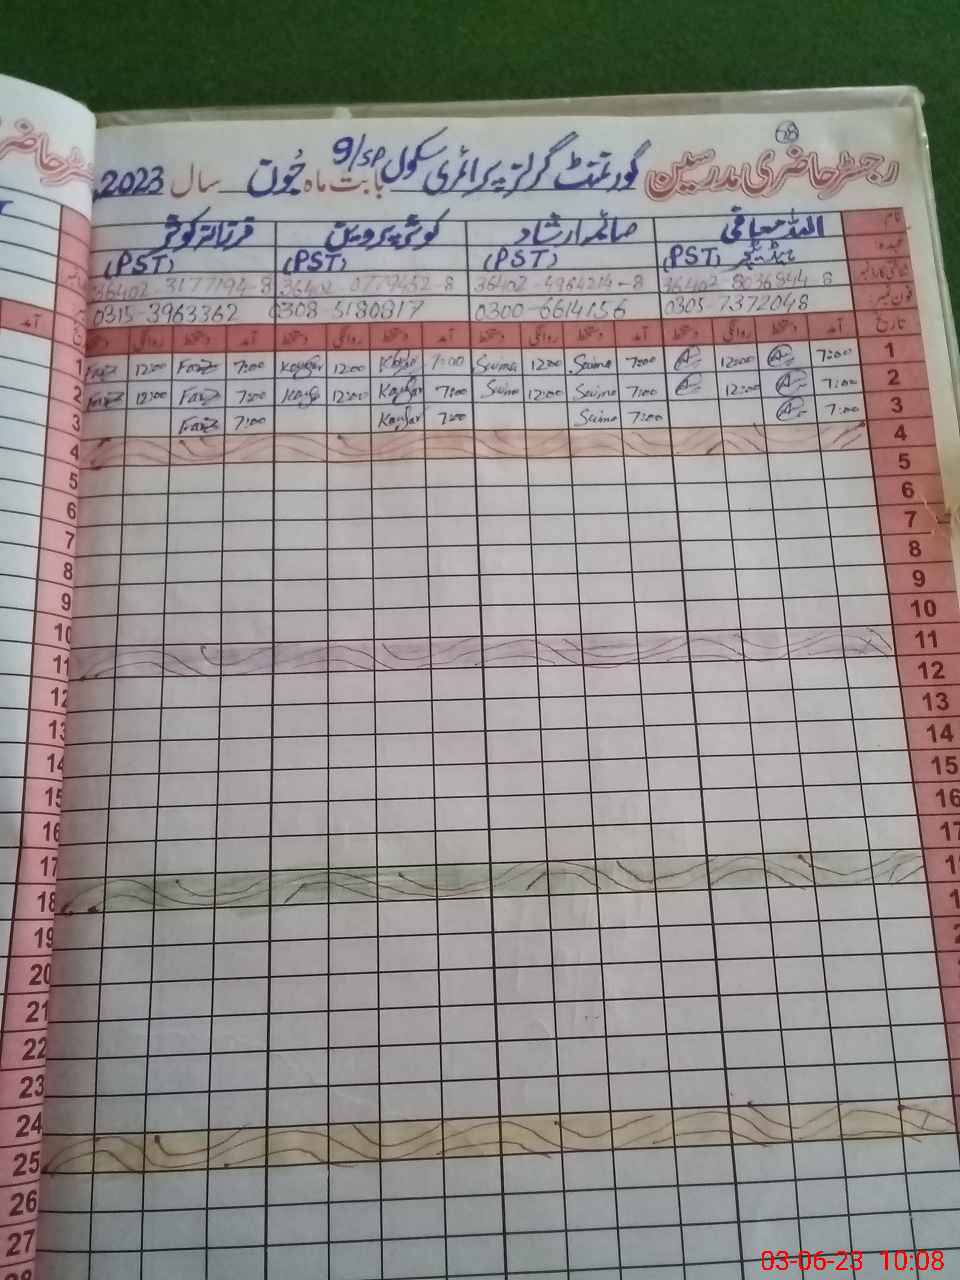 28
رجسٹر حاضری مدرسین گورنمنٹ گرلز پرائمری سکول 9/SP بابت ماہ جون سال 2023
نام صائمہ ارشاد کوثر پروین فرزانہ کوثر
عہدہ ہیڈ ٹیچر (PST) (PST) (PST) (PST)
36402-8036844-8 36402-4964214-8 36402-0779452-8 36402-3177194-8
فون نمبر 0305-7372048 0300-6614156 0308-5180817 0315-3963362
تاریخ آمد دستخط روانگی دستخط آمد دستخط روانگی دستخط آمد دستخط روانگی دستخط آمد دستخط روانگی دستخط
1 7:00 12:00 7:00 Saima 12:00 Saima 7:00 Kausar 12:00 Kausar 7:00 Farz 12:00 Farz 1
2 7:00 12:00 7:00 Saima 12:00 Saima 7:00 Kausar 12:00 Kausar 7:00 Farz 12:00 Farz 2
3 7:00 7:00 Saima 7:00 Kausar 7:00 Farz 3
4 4
5 5
6 6
7 7
8 8
9 9
10 10
11 11
12 12
13 13
14 14
15 15
16 16
17
18
19
20
21
22
23
24
25
26
27
03-06-23 10:08